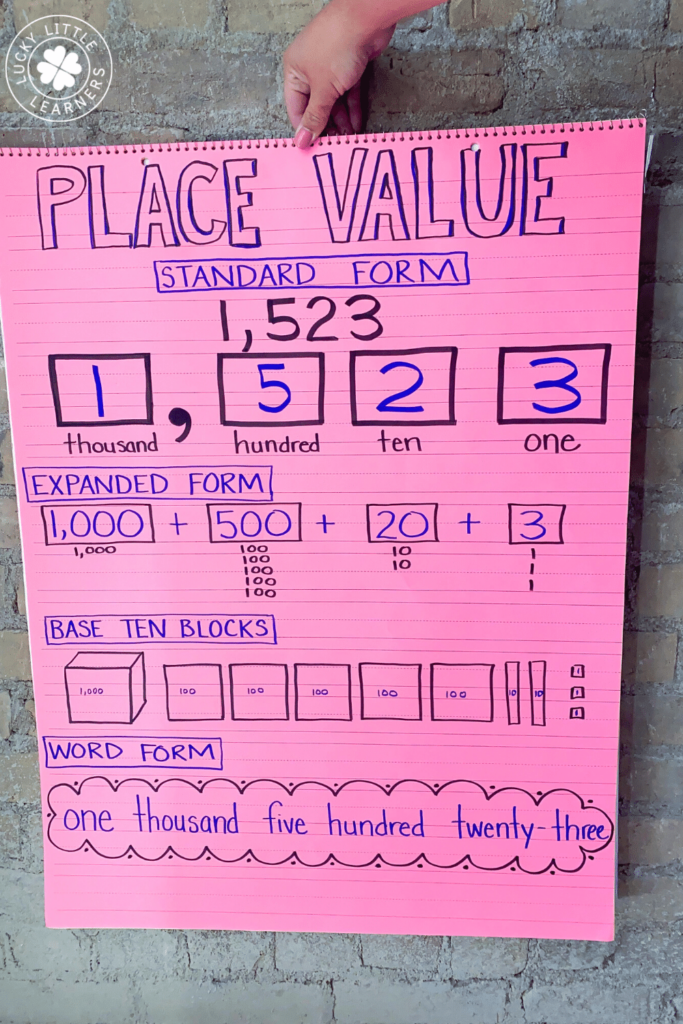 LUCKY LITTLE LEARNERS
PLACE VALUE
STANDARD FORM
1,523
1 , 5 2 3
thousand hundred ten one
EXPANDED FORM
1,000 + 500 + 20 + 3
1,000 100 10 1
100 10 1
100 1
100
100
BASE TEN BLOCKS
1,000 100 100 100 100 100 10 10 1
1
1
WORD FORM
one thousand five hundred twenty-three